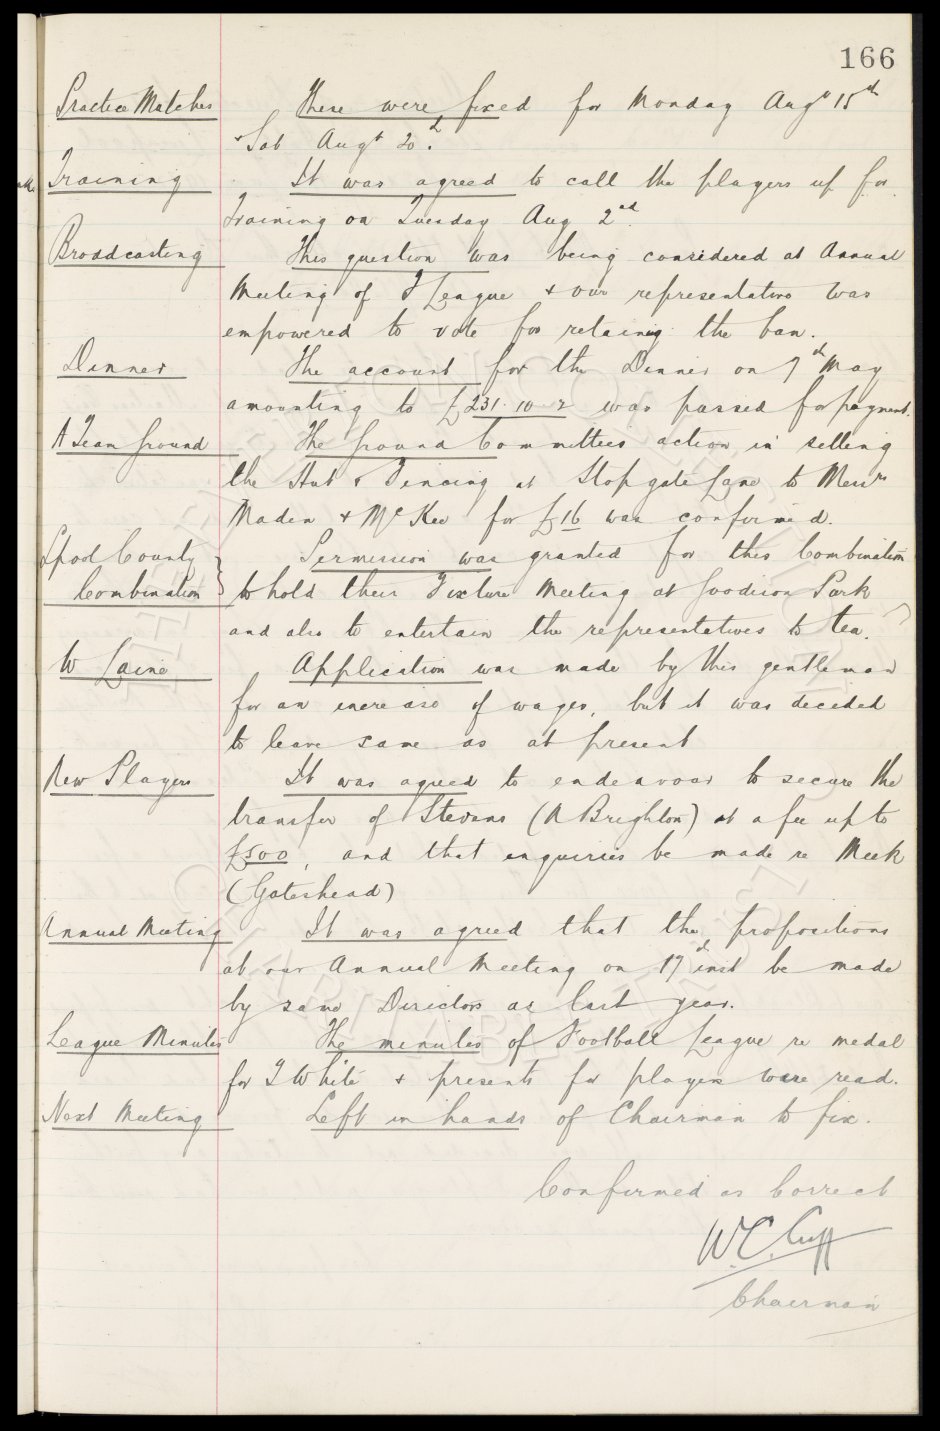 166
Practice Matches These were fixed for Monday Augt 15th
+ Sat Augt 20.
Training It was agreed to call the players up for
Training on Tuesday Aug 2nd.
Broadcasting This question was being considered at Annual
Meeting of F League + our representative was
empowered to vote for retaining the ban.
Dinner The account for the Dinner on 7th May
amounting to £231. 10. 2 was passed for payment.
A Team Ground The Ground Committees action in selling
the Hut & Fencing at Stopgate Lane to Messrs
Maden + McKee for £16 was confirmed.
Lpool County Permission was granted for this Combination
Combination to hold their Fixture Meeting at Goodison Park
and also to entertain the representatives to tea.
W Laine Application was made by this gentleman
for an increase of wages, but it was decided
to leave same as at present
New Players It was agreed to endeavour to secure the
transfer of Stevens (N Brighton) at a fee up to
£500, and that enquiries be made re Meek
(Gateshead)
Annual Meeting It was agreed that the propositions
at our Annual Meeting on 17th inst be made
by same Directors as last year.
League Minutes The minutes of Football League re medal
for T White + presents for players were read.
Next Meeting Left in hands of Chairman to fix.
Confirmed as Correct
W.C. Cuff
Chairman